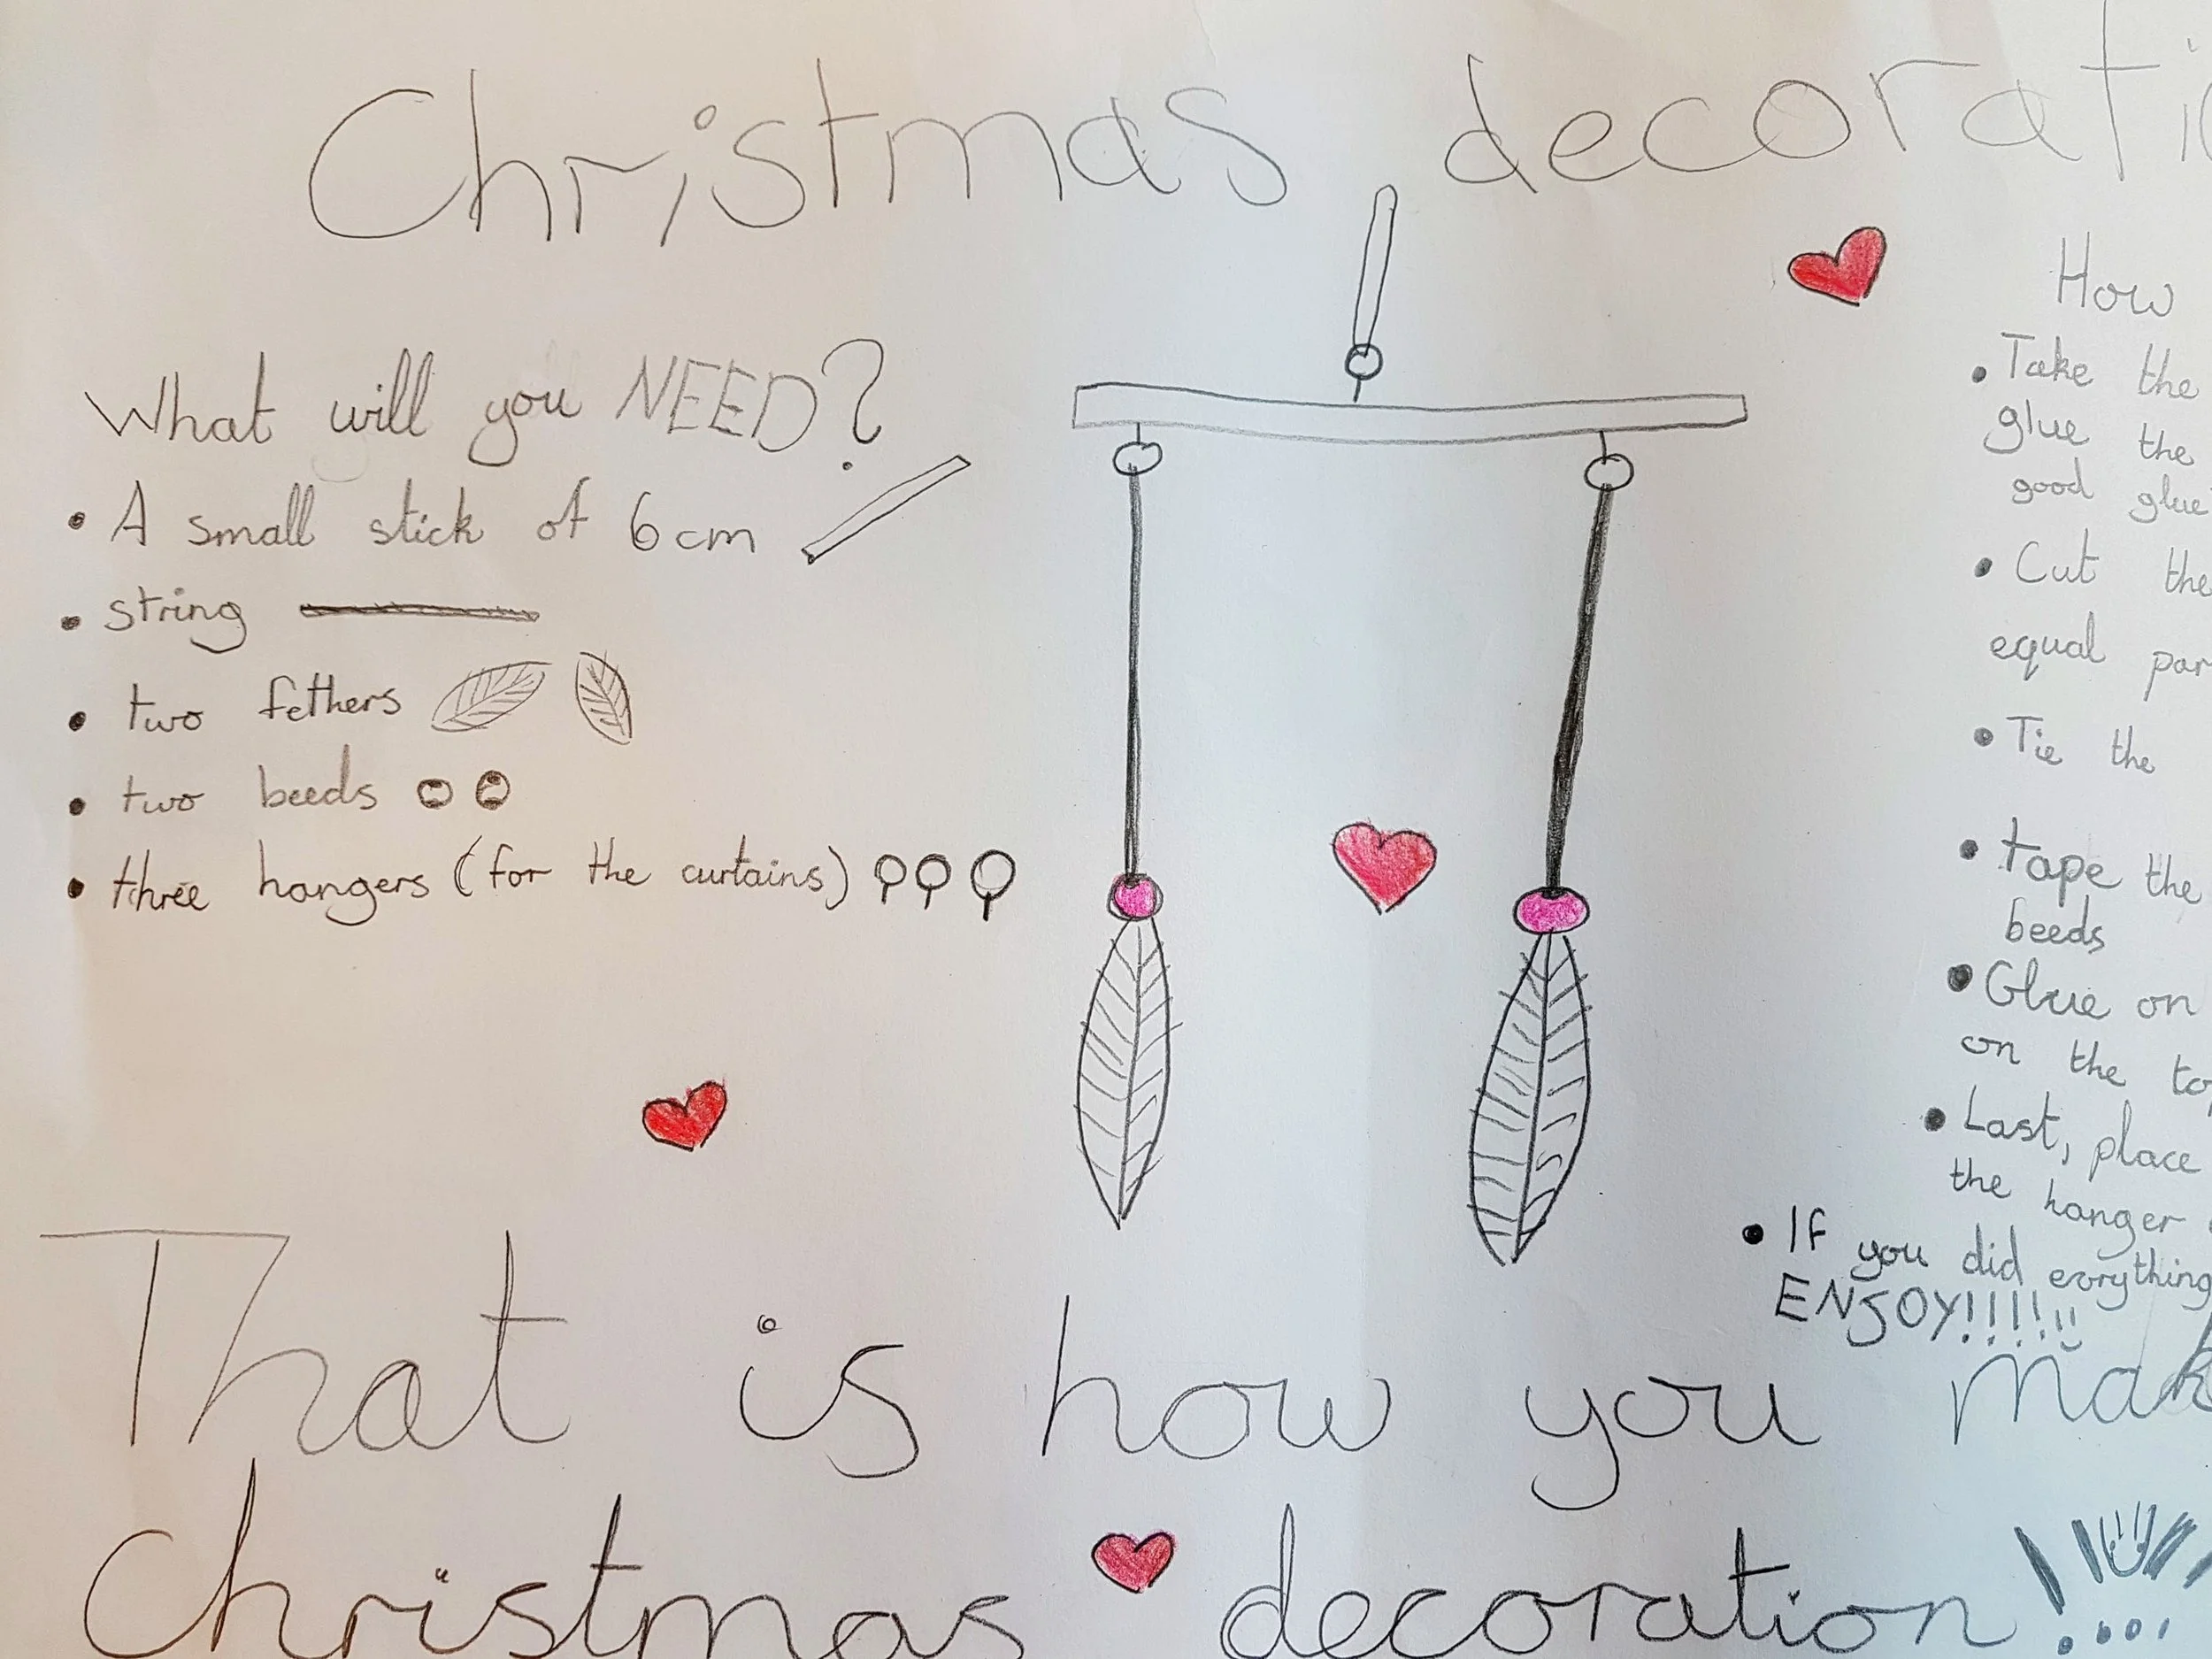 Christmas decorati
What will you NEED?
• A small stick of 6cm
• string
• two fethers
• two beeds
• three hangers (for the curtains)
How
• Take the
glue the
good glue
• Cut the
equal par
• Tie the
• tape the
beeds
• Glue on
on the to
• Last, place
the hanger
• If you did evrything
ENJOY!!!!!!
That is how you mak
christmas decoration!